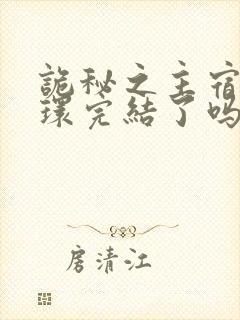 詭秘之主宿
環完結了嗎
房清江